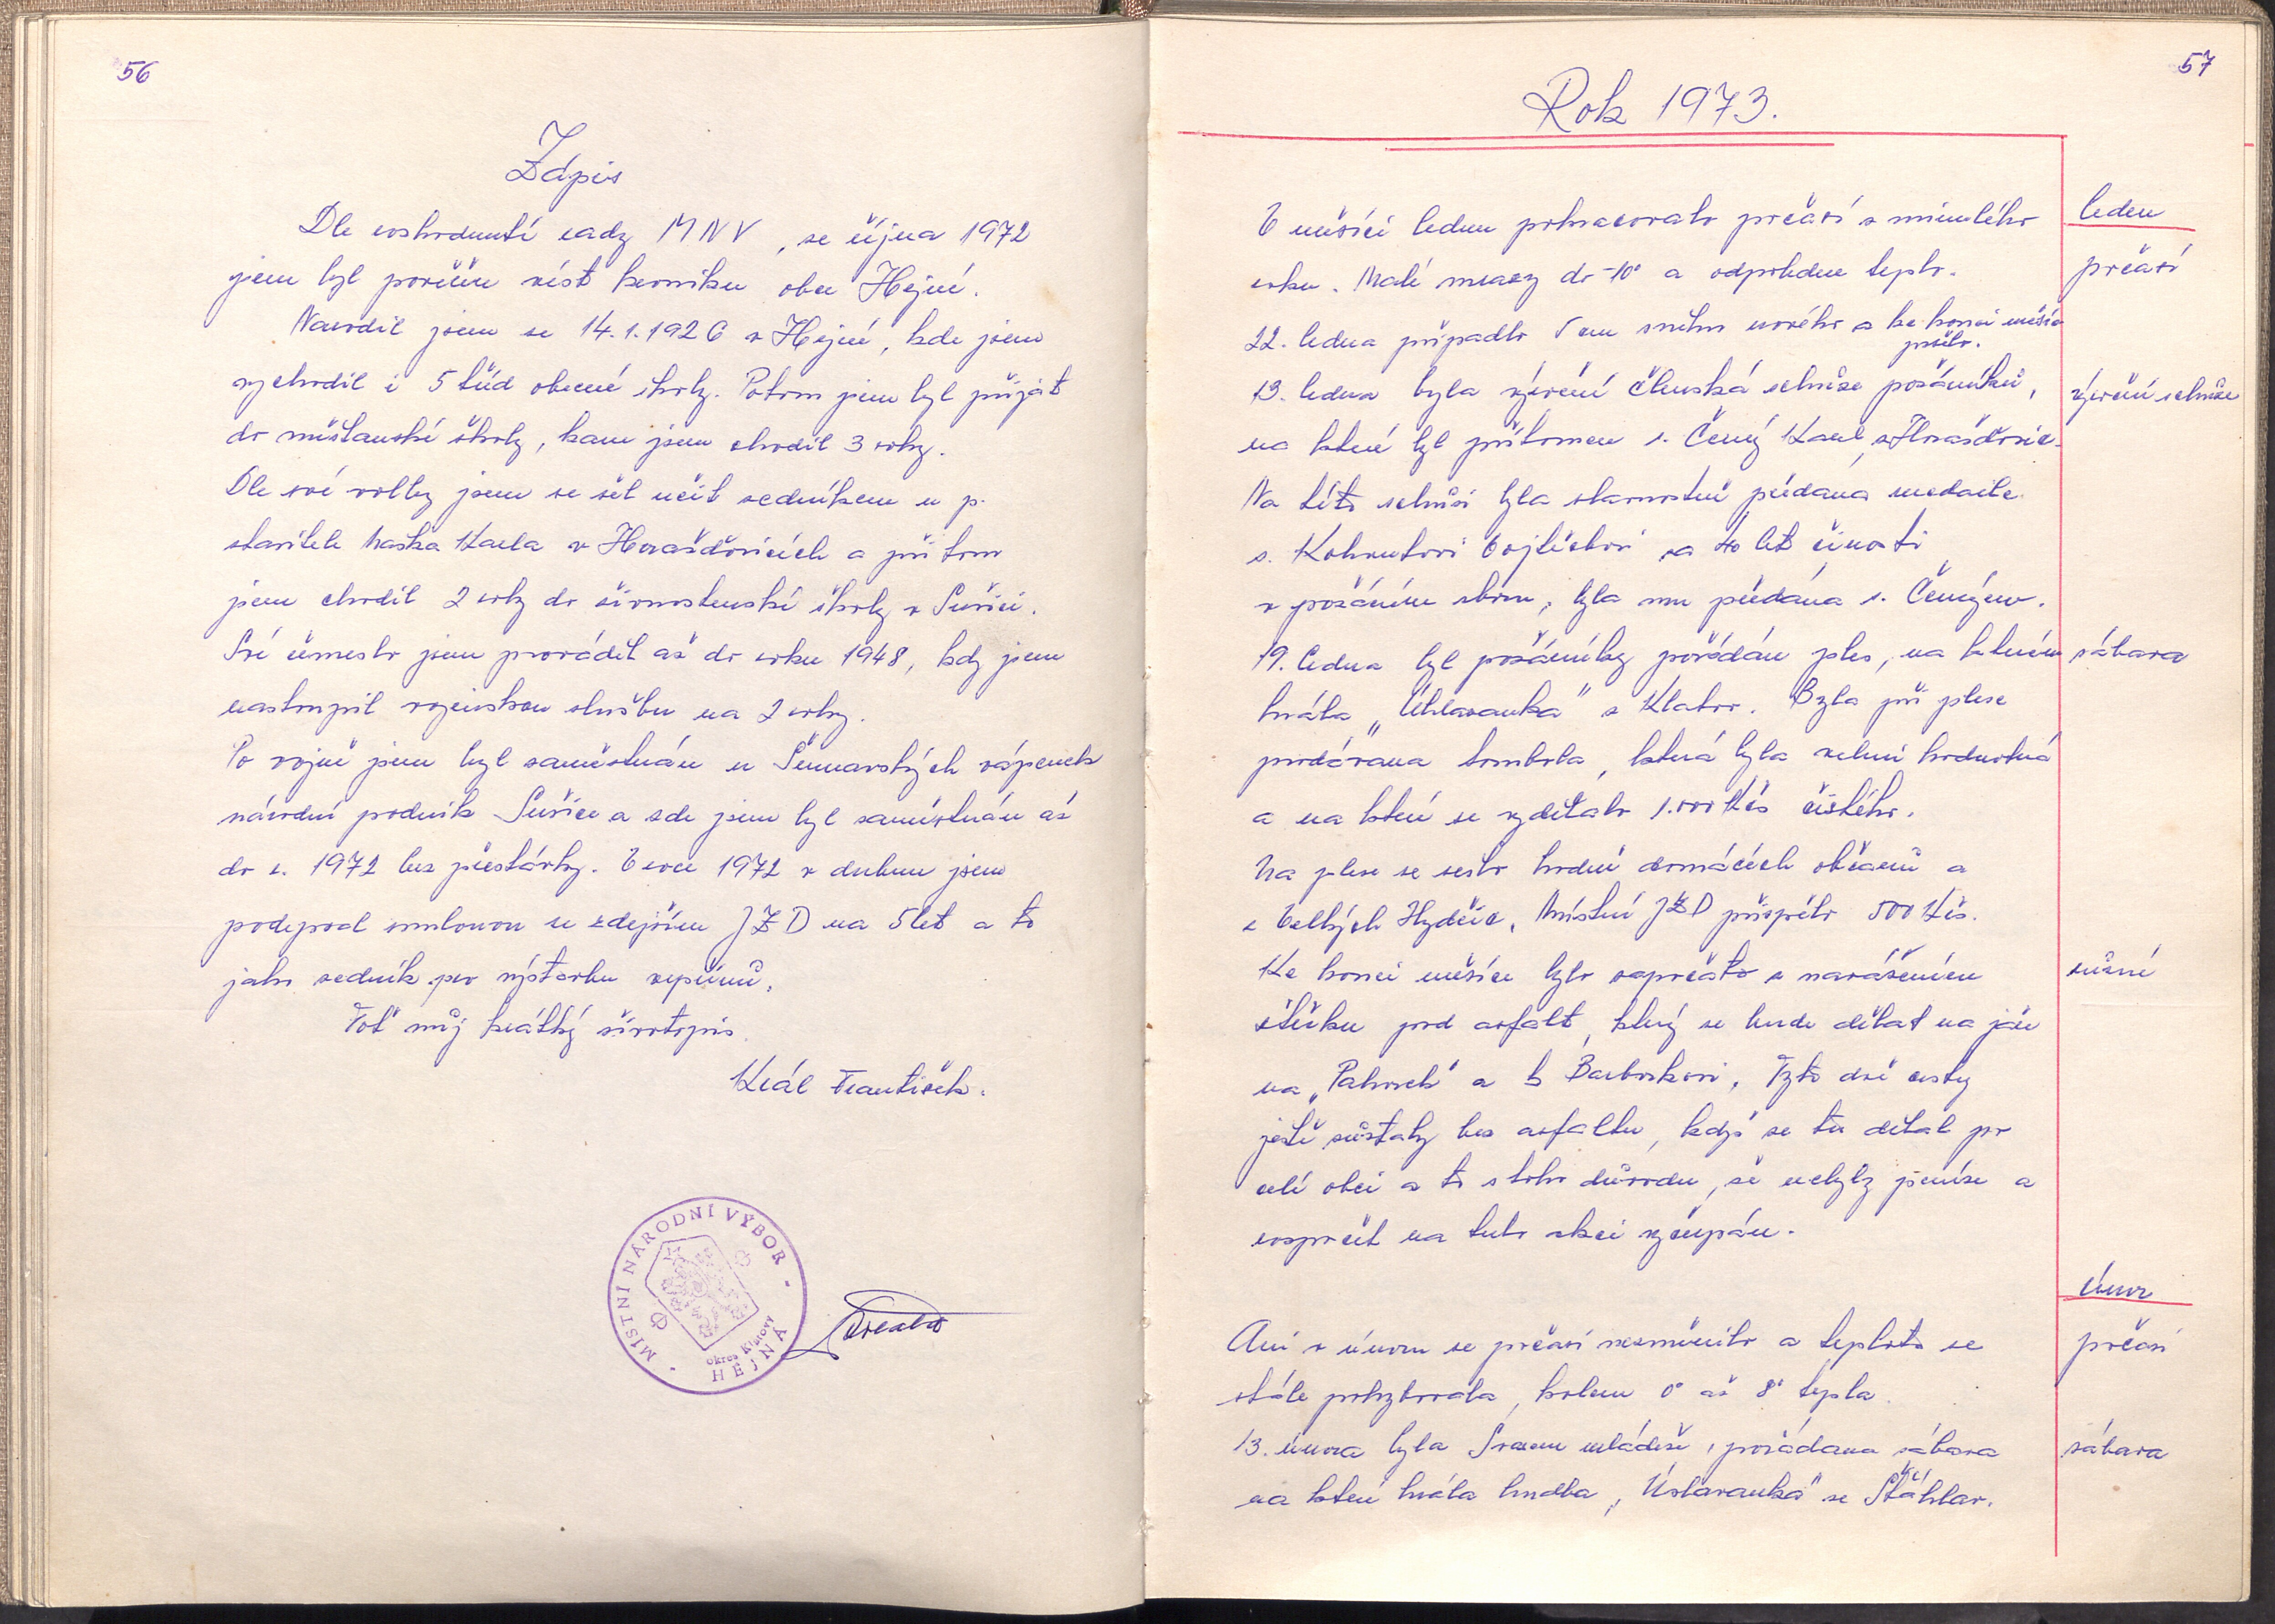 56
Zápis
Dle rozhodnutí rady MNV, ze října 1972
jsem byl pověřen vést kroniku obce Hejné.
Narodil jsem se 14.1.1926 v Hejné, kde jsem
vychodil i 5 tříd obecné školy. Potom jsem byl přijat
do měšťanské školy, kam jsem chodil 3 roky.
Dle své volby jsem se šel učit zedníkem u p.
stavitele Maška Karla v Horažďovicích a při tom
jsem chodil 2 roky do živnostenské školy v Sušici.
Své řemeslo jsem prováděl až do roku 1948, kdy jsem
nastoupil vojenskou službu na 2 roky.
Po vojně jsem byl zaměstnán u Šumavských vápenek
národní podnik Sušice a zde jsem byl zaměstnán až
do r. 1972 bez přestávky. V roce 1972 v dubnu jsem
podepsal smlouvu se zdejším JZD na 5 let a to
jako zedník pro výstavbu vepřínů.
Toť můj krátký životopis.
Král František.
MÍSTNÍ NÁRODNÍ VÝBOR
okres Klatovy
HEJNÁ
57
Rok 1973.
V měsíci lednu pokračovalo počasí z minulého
leden
roku. Malé mrazy do -10° a odpoledne teplo.
počasí
22. ledna připadlo 5 cm sněhu nového a ke konci měsíce
pršelo.
13. ledna byla výroční členská schůze požárníků,
výroční schůze
na které byl přítomen s. Černý Karel z Horažďovic.
Na této schůzi byla slavnostně předána medaile
s. Kohoutovi Vojtěchovi za 40 let činosti
v požárním sboru, byla mu předána s. Černým.
19. ledna byl požárníky pořádán ples, na kterém
zábava
hrála „Úhlavanka" z Klatov. Byla při plese
prodávana tombola, která byla velmi hodnotná
a na které se vydělalo 1.000 Kčs čistého.
Na plese se sešlo hodně domácích občanů a
z Velkých Hydčic. Místní JZD přispělo 500 Kčs.
Ke konci měsíce bylo započato s navážením
různé
štěrku pod asfalt, který se bude dělat na jaře
na „Pahorek" a k Barborkovi. Tyto dvě cesty
ještě zůstaly bez asfaltu, když se tu dělal po
celé obci a to z toho důvodu, že nebyly peníze a
rozpočet na tuto akci vyčerpán.
únor
Ani v únoru se počasí nezměnilo a teplota se
počasí
stále pohybovala, kolem 0° až 8° tepla.
13. února byla Svazem mládeže, pořádana zábava
zábava
na které hrála hudba, „Úslavanka" ze Šťáhlav.